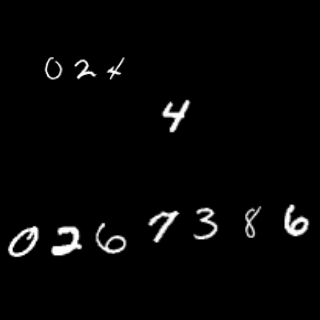 024
4
0267386